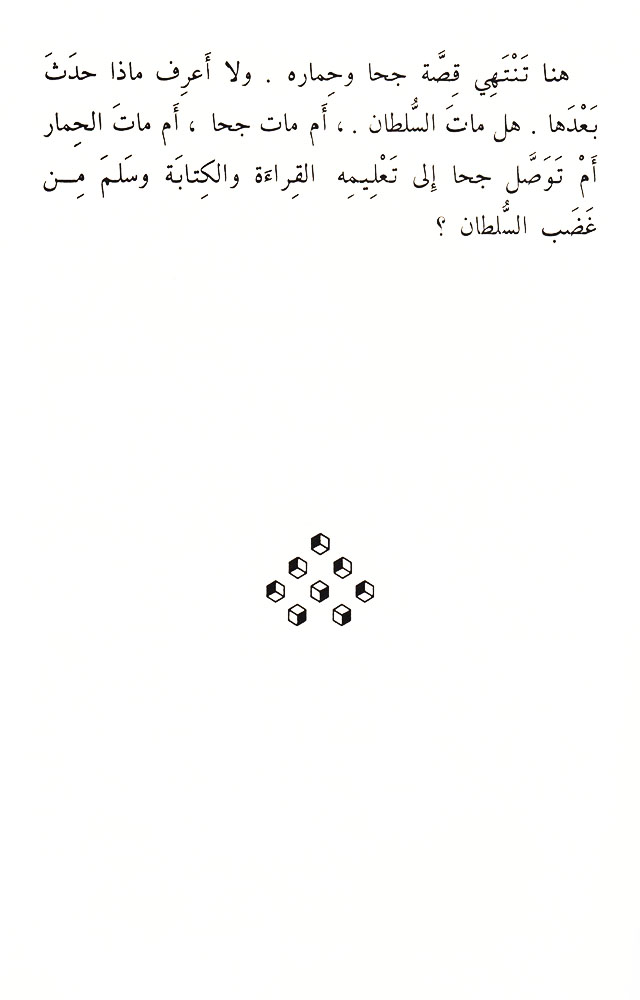 هنا تَنْتَهِي قِصَّة جحا وحِماره . ولا أَعرِف ماذا حدَثَ
بَعْدَها . هل ماتَ السُّلطان . ، أَم مات جحا ، أَم ماتَ الحِمار
أَمْ تَوَصَّل جحا إِلى تَعْلِيمِه القِراءَة والكِتابَة وسَلمَ مِـــن
غَضَب السُّلطان ؟